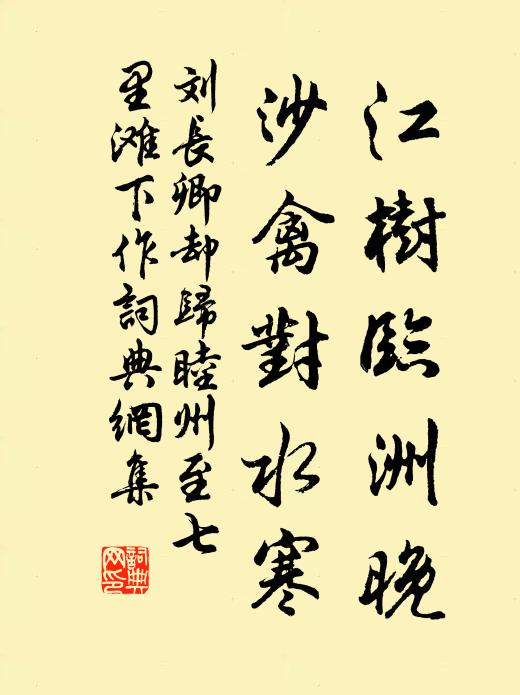 江樹臨洲晚
沙禽對水寒
刘長卿却歸睦州至七
里滩下作詞典網集
詞典网印